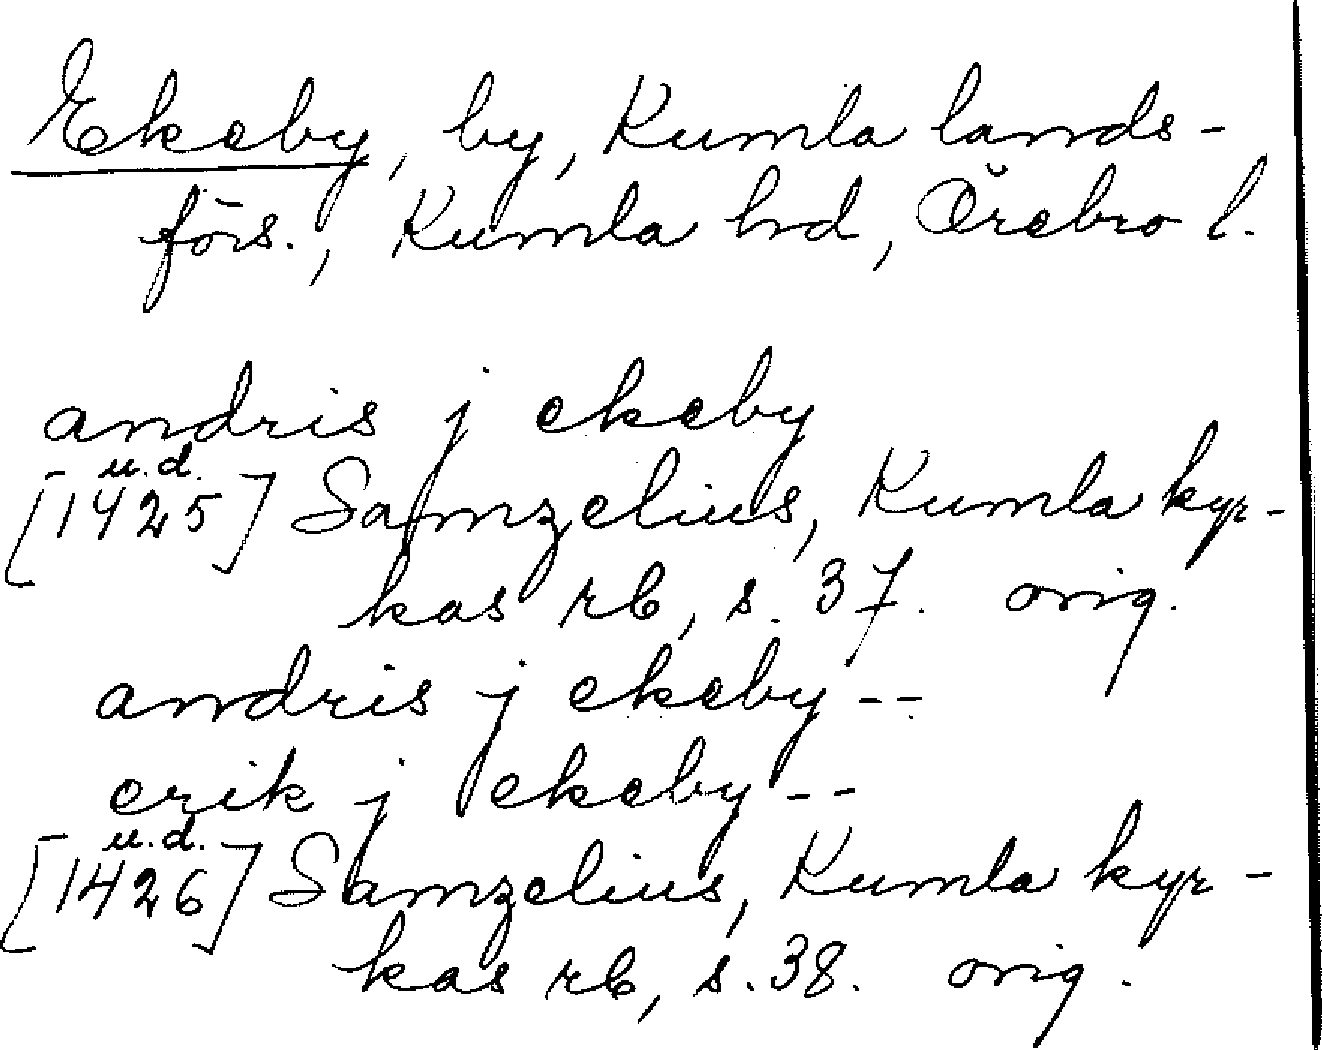 Ekeby, by, Kumla lands-
förs., Kumla hd, Örebro l.
andris j ekeby
u.d.
[1425] Samzelius, Kumla kyr-
kas rb, s. 37. orig.
andris j ekeby --
erik j ekeby --
u.d.
[1426] Samzelius, Kumla kyr-
kas rb, s. 38. orig.